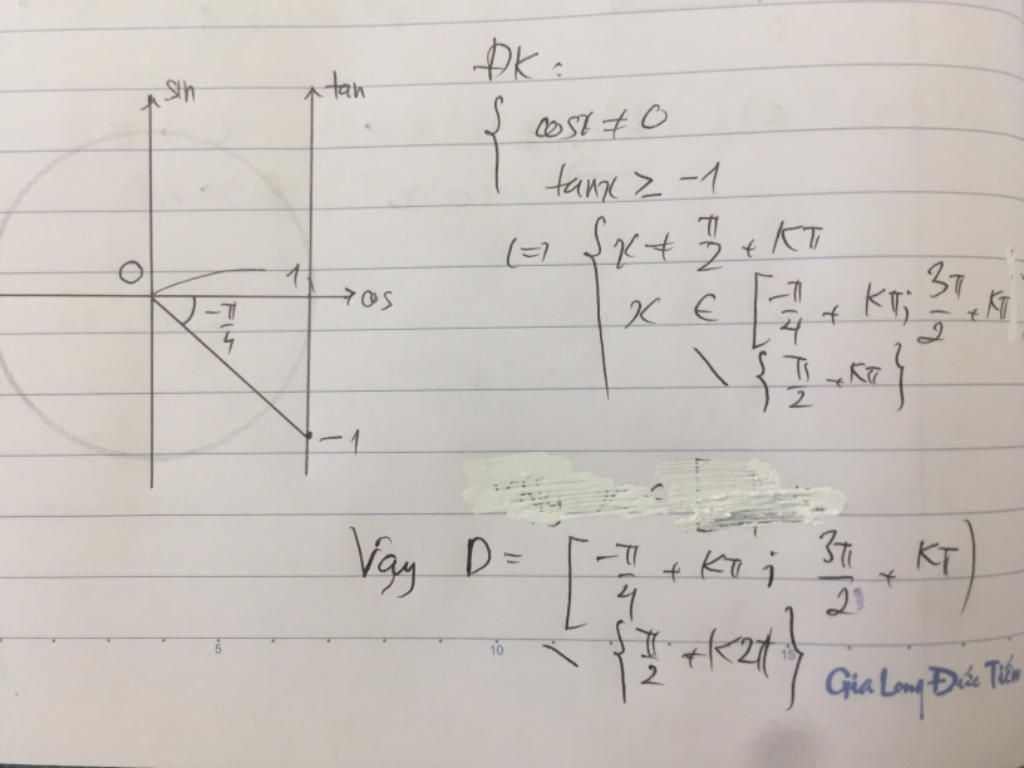 sin
tan
ĐK:
{ cosx ≠ 0
tanx ≥ -1
O
1
cos
-π/4
-1
(=) { x ≠ π/2 + Kπ
x ∈ [-π/4 + Kπ; 3π/2 + Kπ
\ {π/2 + Kπ}
Vậy D = [-π/4 + Kπ ; 3π/2 + Kπ)
\ {π/2 + K2π}
5 10 15
Gia Long Đức Tiến